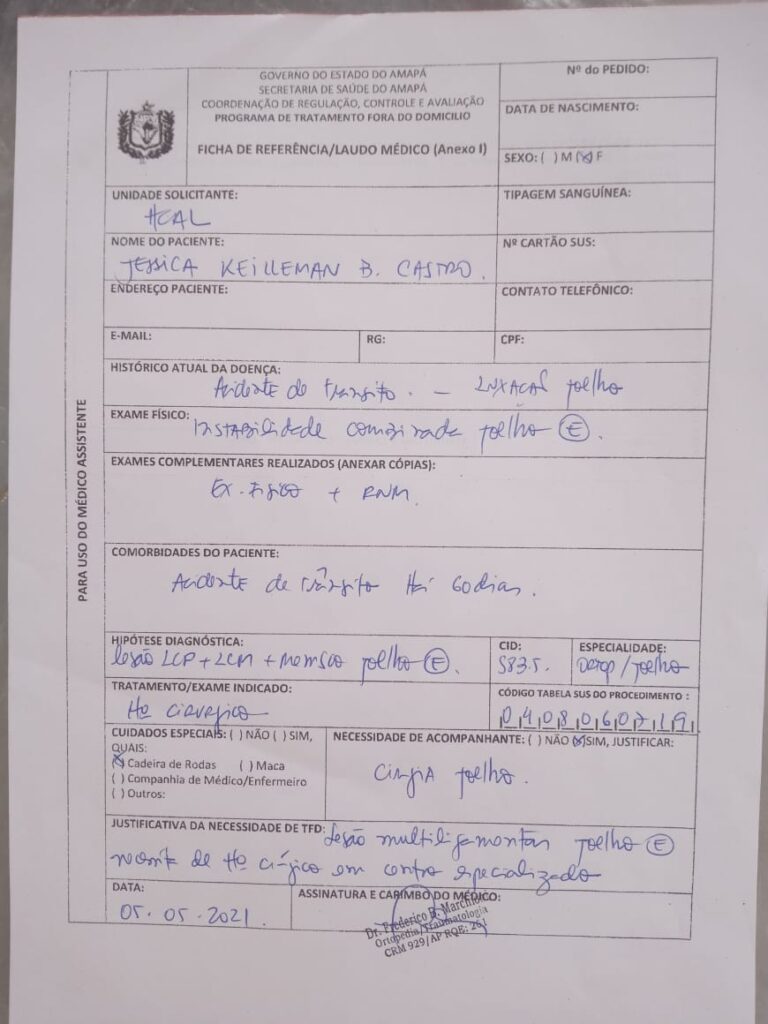 GOVERNO DO ESTADO DO AMAPÁ
SECRETARIA DE SAÚDE DO AMAPÁ
COORDENAÇÃO DE REGULAÇÃO, CONTROLE E AVALIAÇÃO
PROGRAMA DE TRATAMENTO FORA DO DOMICILIO
FICHA DE REFERÊNCIA/LAUDO MÉDICO (Anexo I)
Nº do PEDIDO:
DATA DE NASCIMENTO:
SEXO: ( ) M (X) F
UNIDADE SOLICITANTE:
HCAL
TIPAGEM SANGUÍNEA:
NOME DO PACIENTE:
JESSICA KEILLEMAN B. CASTRO.
Nº CARTÃO SUS:
ENDEREÇO PACIENTE:
CONTATO TELEFÔNICO:
E-MAIL:
RG:
CPF:
PARA USO DO MÉDICO ASSISTENTE
HISTÓRICO ATUAL DA DOENÇA:
Acidente de trânsito. — Luxação joelho
EXAME FÍSICO:
Instabilidade combinada joelho (E).
EXAMES COMPLEMENTARES REALIZADOS (ANEXAR CÓPIAS):
Ex. Físico + RNM.
COMORBIDADES DO PACIENTE:
Acidente de trânsito Há 60 dias.
HIPÓTESE DIAGNÓSTICA:
lesão LCP + LCM + menisco joelho (E).
CID:
S83.5.
ESPECIALIDADE:
Ortop / joelho
TRATAMENTO/EXAME INDICADO:
Tto cirúrgico
CÓDIGO TABELA SUS DO PROCEDIMENTO :
0408060719
CUIDADOS ESPECIAIS: ( ) NÃO ( ) SIM,
QUAIS:
(X) Cadeira de Rodas ( ) Maca
( ) Companhia de Médico/Enfermeiro
( ) Outros:
NECESSIDADE DE ACOMPANHANTE: ( ) NÃO (X) SIM, JUSTIFICAR:
Cirurgia joelho.
JUSTIFICATIVA DA NECESSIDADE DE TFD: lesão multiligamentar joelho (E)
necessita de tto cirúrgico em centro especializado
DATA:
05.05.2021
ASSINATURA E CARIMBO DO MÉDICO:
Dr. Frederico B. Marchi
Ortopedia/Traumatologia
CRM 929/AP RQE: 261